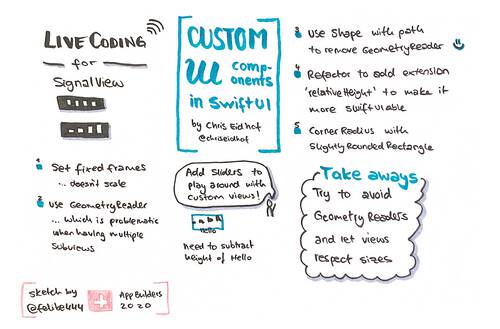 LIVE CODING
for
SignalView
1 Set fixed frames
... doesn't scale
2 Use GeometryReader
... which is problematic
when having multiple
Subviews
CUSTOM
UI components
in SwiftUI
by Chris Eidhof
@chriseidhof
Add Sliders to
play around with
custom views!
Hello
need to subtract
height of Hello
3 Use Shape with path
to remove GeometryReader
4 Refactor to add extension
'relativeHeight' to make it
more SwiftUIable
5 Corner Radius with
Slightly Rounded Rectangle
Take aways
Try to avoid
Geometry Readers
and let views
respect sizes
sketch by
@felibe444
App Builders
2020